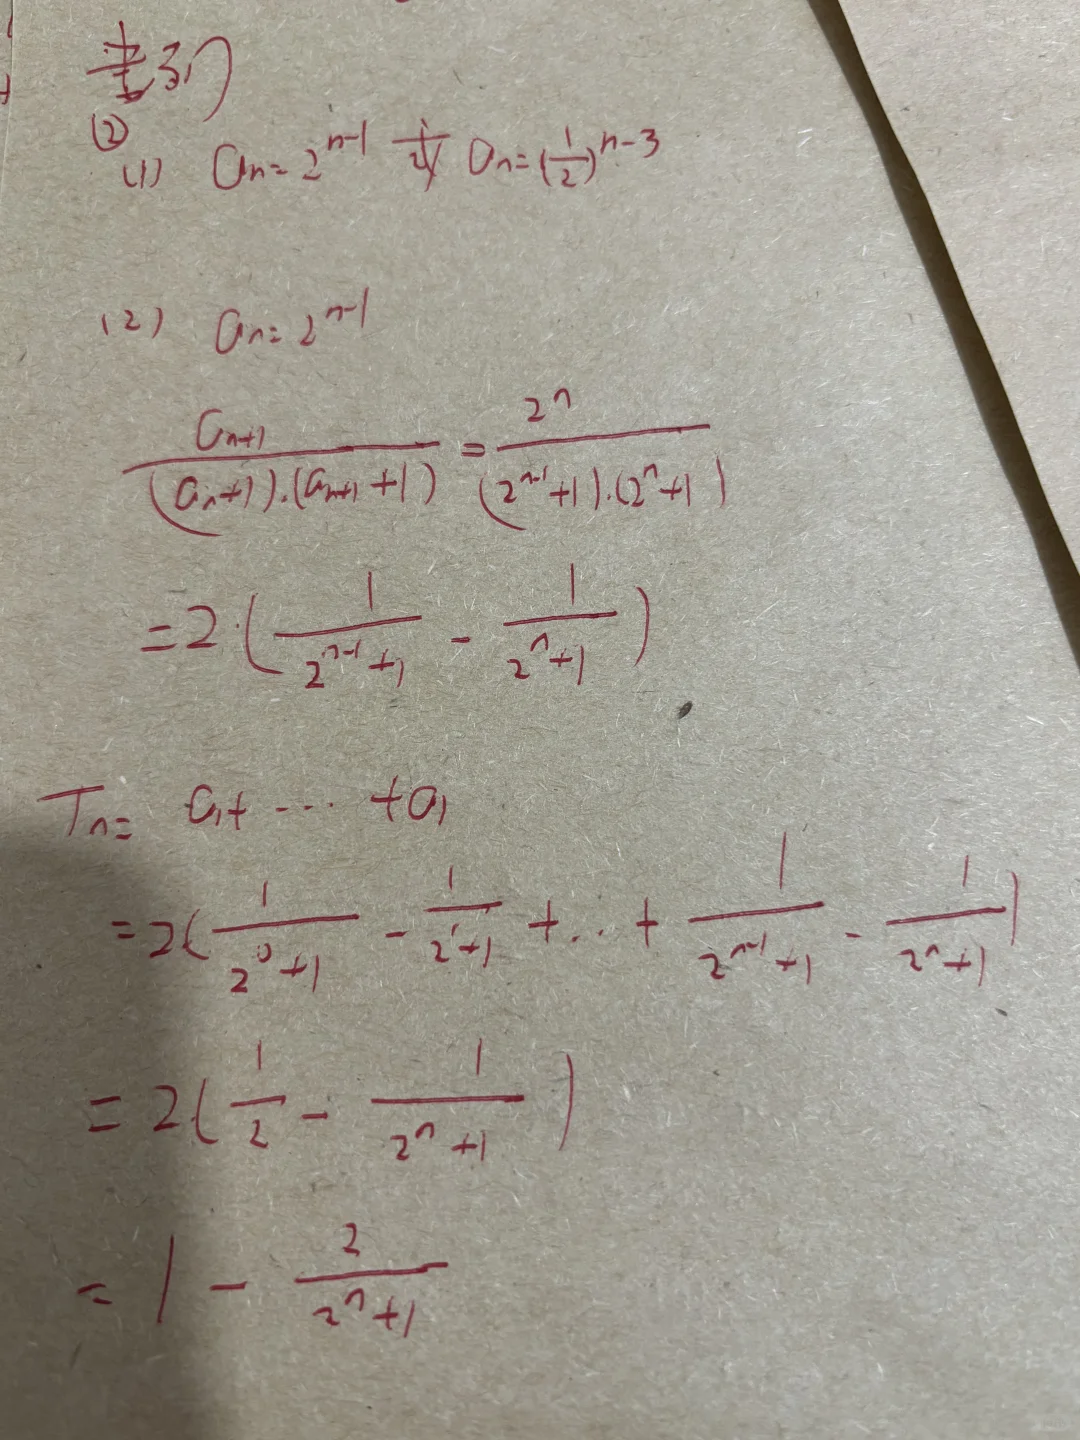 ②
(1) aₙ=2ⁿ⁻¹ aₙ=(1/2)ⁿ⁻³
(2) aₙ=2ⁿ⁻¹
aₙ₊₁/((aₙ+1)·(aₙ₊₁+1)) = 2ⁿ/((2ⁿ⁻¹+1)·(2ⁿ+1))
=2·(1/(2ⁿ⁻¹+1) - 1/(2ⁿ+1))
Tₙ= a₁+ ··· +a₁
=2(1/(2⁰+1) - 1/(2¹+1) +...+ 1/(2ⁿ⁻¹+1) - 1/(2ⁿ+1))
=2(1/2 - 1/(2ⁿ+1))
=1 - 2/(2ⁿ+1)